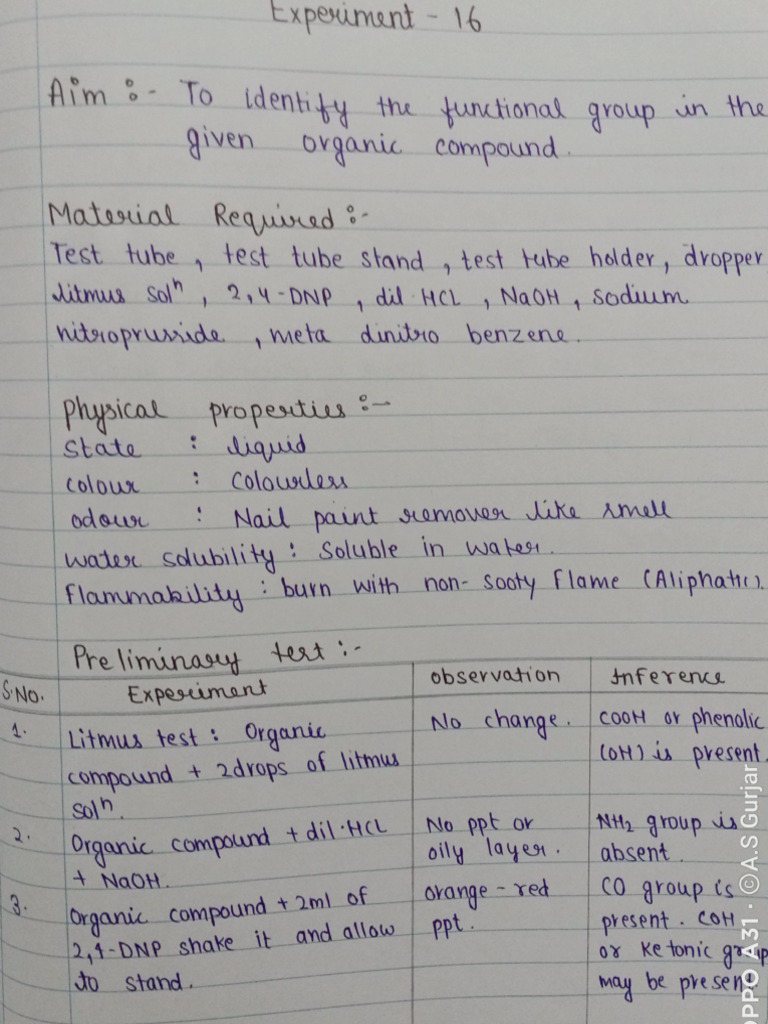 Experiment - 16
Aim :- To identify the functional group in the
given organic compound.
Material Required :-
Test tube, test tube stand, test tube holder, dropper
litmus solⁿ, 2,4-DNP, dil. HCL, NaOH, sodium
nitroprusside, meta dinitro benzene.
Physical properties :-
State : liquid
colour : Colourless
odour : Nail paint remover like smell
water solubility : Soluble in water.
flammability : burn with non-sooty flame (Aliphatic).
Preliminary test :-
S.No. Experiment observation Inference
1. Litmus test : Organic No change. COOH or phenolic
compound + 2drops of litmus (OH) is present.
solⁿ.
2. Organic compound + dil.HCL No ppt or NH2 group is
+ NaOH. oily layer. absent.
3. Organic compound + 2ml of orange-red CO group is
2,4-DNP shake it and allow ppt. present. COH
to stand. or ketonic group
may be present
OPPO A31 · ©A.S Gurjar